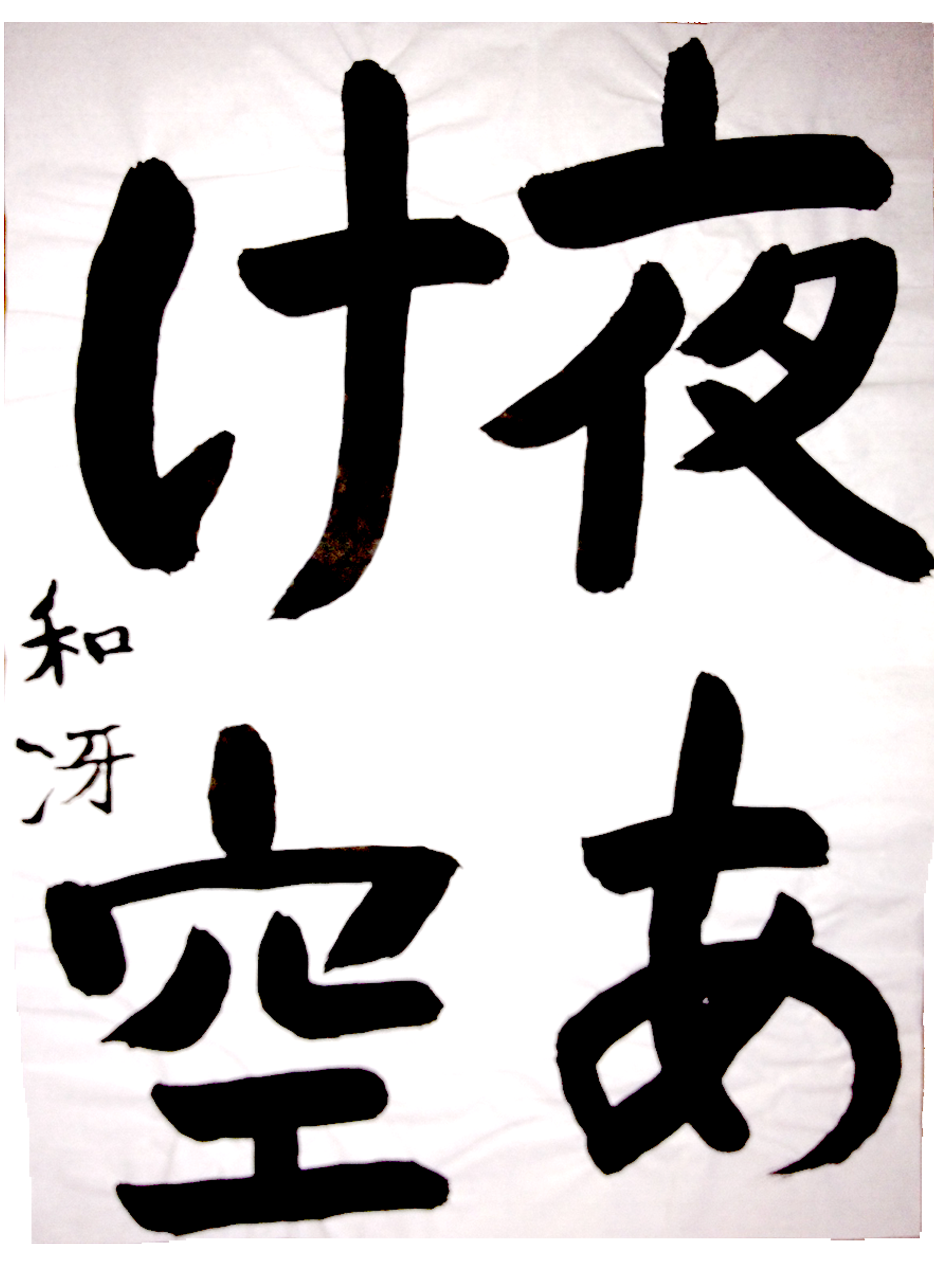 夜あ
け空
和冴